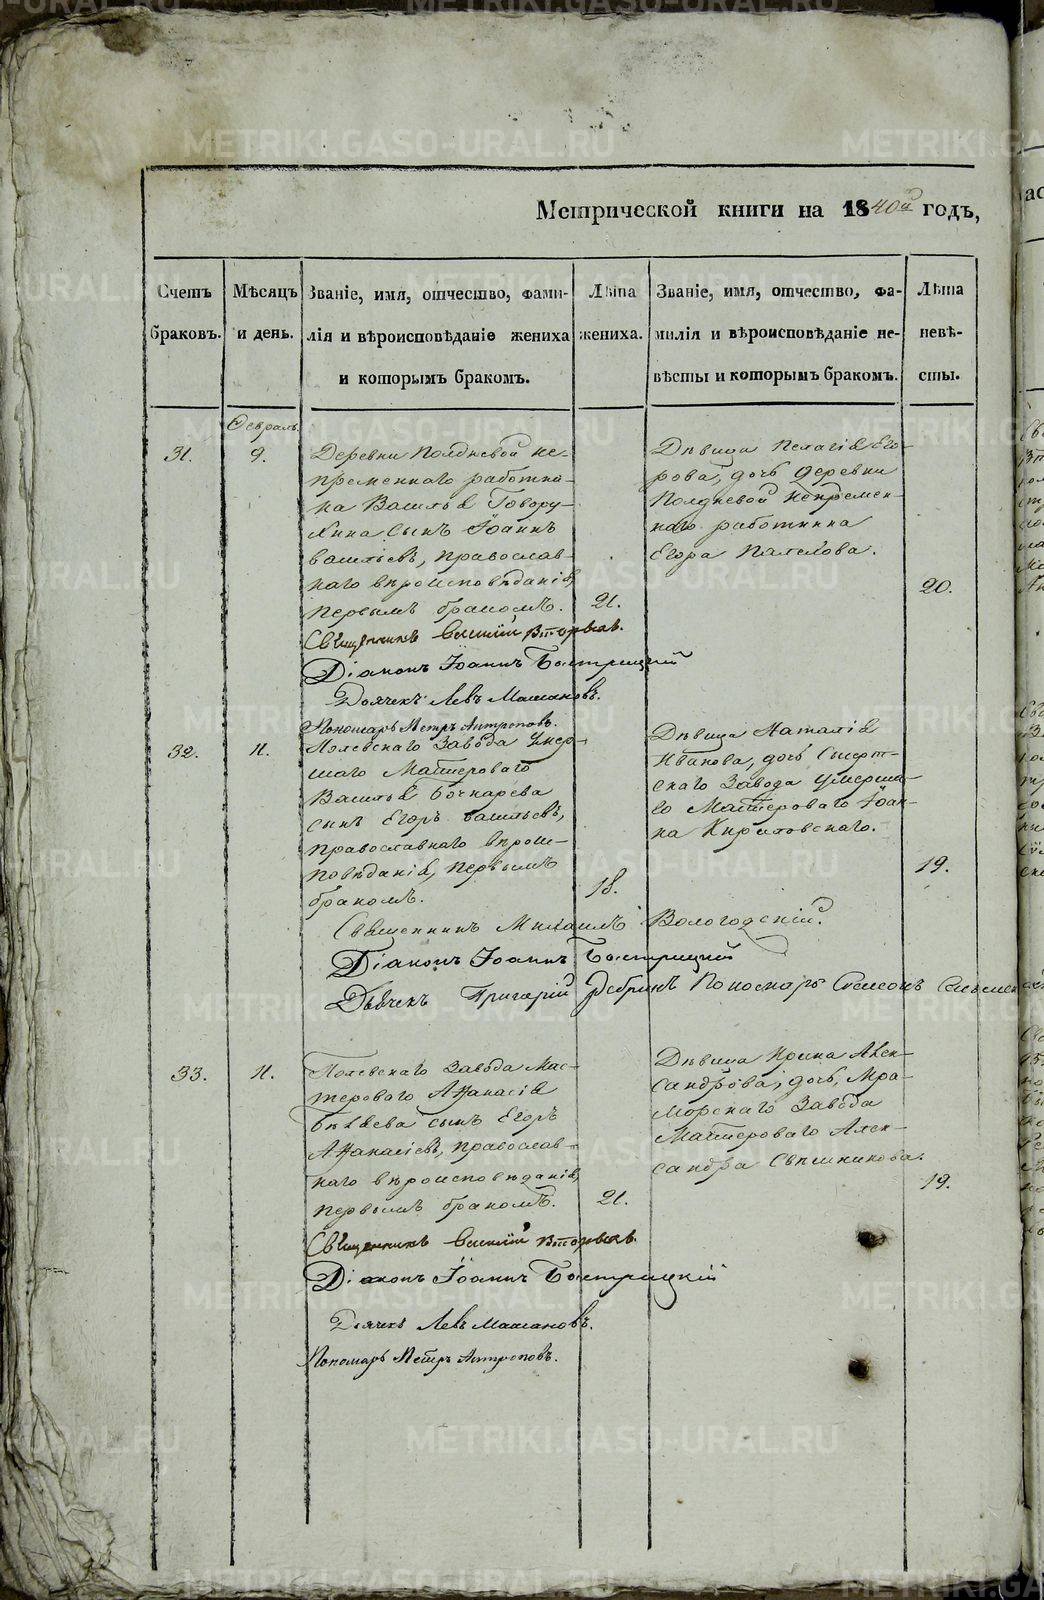 Метрической книги на 1840й годъ,
Счетъ браковъ.
Мѣсяцъ и день.
Званіе, имя, отчество, фами-
лія и вѣроисповѣданіе жениха
и которымъ бракомъ.
Лѣта жениха.
Званіе, имя, отчество, фа-
милія и вѣроисповѣданіе не-
вѣсты и которымъ бракомъ.
Лѣта невѣ-
сты.
Февраль.
31.
9.
Деревни Полдневой не-
пременнаго работни-
ка Василья Говору-
хина сынъ Іоаннъ
Васильевъ, православ-
наго вѣроисповѣданія,
первымъ бракомъ.
21.
Дѣвица Пелагія Его-
рова, дочь деревни
Полдневой непремен-
наго работника
Егора
20.
Священникъ Василій
Діаконъ Іоаннъ Быстрицкій
Дьячекъ Левъ
Пономарь Петръ Антроповъ.
32.
11.
Полевскаго Завода умер-
шаго Мастероваго
Василья Бочкарева
сынъ Егоръ Васильевъ,
православнаго вѣрои-
повѣданія, первымъ
бракомъ.
18.
Дѣвица Наталія
Иванова, дочь Сысерт-
скаго Завода умерша-
го Мастероваго Іоан-
на Кириловскаго.
19.
Священникъ Михаилъ Вологодскій.
Діаконъ Іоаннъ Быстрицкій
Дьячекъ Григорій Пономарь
33.
11.
Полевскаго Завода Мас-
тероваго Аѳанасія
Бѣляева сынъ Егоръ
Аѳанасіевъ, православ-
наго вѣроисповѣданія,
первымъ бракомъ.
21.
Дѣвица Ирина Алек-
сандрова, дочь, Мра-
морскаго Завода
Мастероваго Алек-
сандра Свѣшникова.
19.
Священникъ Василій
Діаконъ Іоаннъ Быстрицкій
Дьячекъ Левъ
Пономарь Петръ Антроповъ.
METRIKI.GASO-URAL.RU